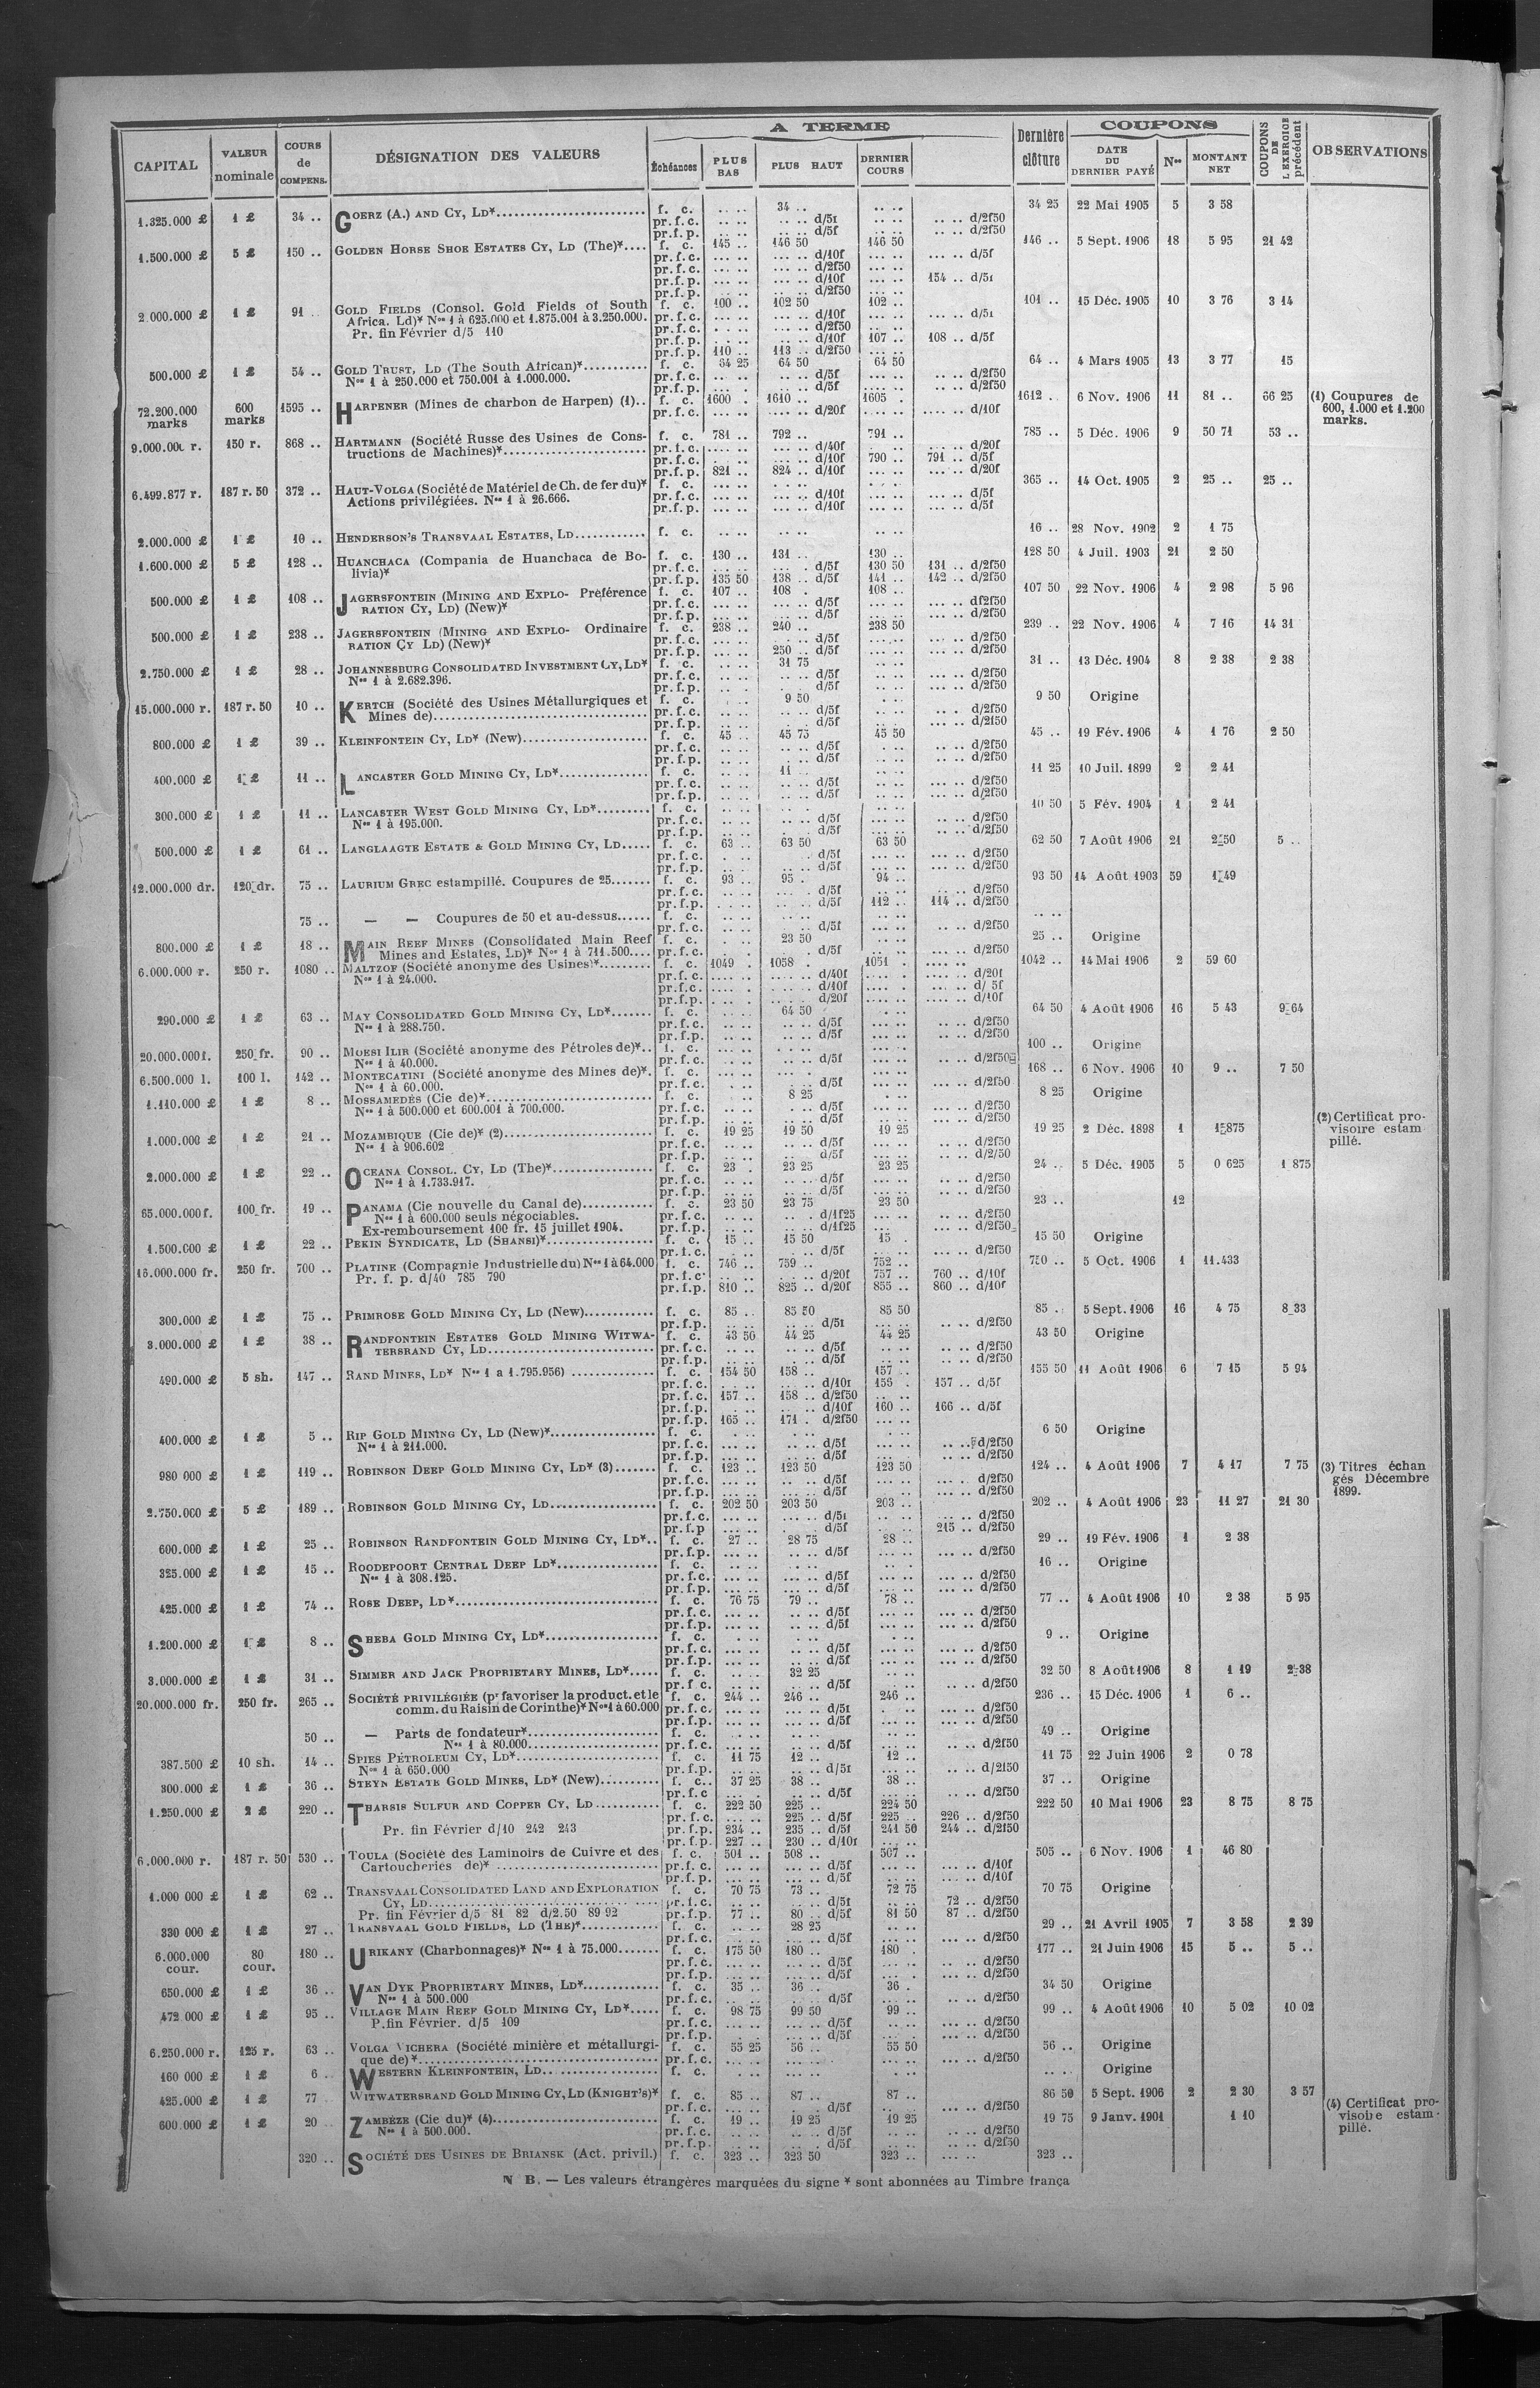 A TERME
COUPONS
CAPITAL | VALEUR nominale | COURS de COMPENS. | DÉSIGNATION DES VALEURS | Échéances | PLUS BAS | PLUS HAUT | DERNIER COURS | Dernière clôture | DATE DU DERNIER PAYÉ | Nos | MONTANT NET | COUPONS DE L'EXERCICE précédent | OBSERVATIONS
1.325.000 £ | 1 £ | 34 .. | GOERZ (A.) AND CY, LD* | f. c. | .. .. | 34 .. | .. .. | 34 25 | 22 Mai 1905 | 5 | 3 58
pr.f.c. | .. .. | .. .. d/5f | .. .. | .. .. d/2f50
pr.f.p. | .. .. | .. .. d/5f | .. .. | .. .. d/2f50
1.500.000 £ | 5 £ | 150 .. | GOLDEN HORSE SHOE ESTATES CY, LD (The)* | f. c. | 145 .. | 146 50 | 146 50 | 146 .. | 5 Sept. 1906 | 18 | 5 95 | 21 42
pr.f.c. | ... .. | ... .. d/10f | ... .. | ... .. d/5f
pr.f.c. | ... .. | ... .. d/2f50 | ... ..
pr.f.p. | ... .. | ... .. d/10f | ... .. | 154 .. d/5f
pr.f.p. | ... .. | ... .. d/2f50 | ... ..
2.000.000 £ | 1 £ | 91 .. | GOLD FIELDS (Consol. Gold Fields of South | f. c. | 100 .. | 102 50 | 102 .. | 101 .. | 15 Déc. 1905 | 10 | 3 76 | 3 14
Africa. Ld)* Nos 1 à 625.000 et 1.875.001 à 3.250.000. | pr.f.c. | ... .. | ... .. d/10f | ... .. | ... .. d/5f
Pr. fin Février d/5 110 | pr.f.c. | ... .. | ... .. d/2f50
pr.f.p. | ... .. | ... .. d/10f | 107 .. | 108 .. d/5f
pr.f.p. | 110 .. | 113 .. d/2f50 | ... ..
500.000 £ | 1 £ | 54 .. | GOLD TRUST, LD (The South African)* | f. c. | 64 25 | 64 50 | 64 50 | 64 .. | 4 Mars 1905 | 13 | 3 77 | 15
Nos 1 à 250.000 et 750.001 à 1.000.000. | pr.f.c. | .. .. | .. .. d/5f | .. .. | .. .. d/2f50
pr.f.p. | .. .. | .. .. d/5f | .. .. | .. .. d/2f50
72.200.000 marks | 600 marks | 1595 .. | HARPENER (Mines de charbon de Harpen) (1) | f. c. | 1600 .. | 1610 .. | 1605 . | 1612 .. | 6 Nov. 1906 | 11 | 81 .. | 66 25 | (1) Coupures de 600, 1.000 et 1.200 marks.
pr.f.c. | .... .. | .... .. d/20f | .... .. | .... .. d/10f
9.000.000 r. | 150 r. | 868 .. | HARTMANN (Société Russe des Usines de Cons- | f. c. | 781 .. | 792 .. | 791 .. | 785 .. | 5 Déc. 1906 | 9 | 50 71 | 53 ..
tructions de Machines)* | pr.f.c. | ... .. | ... .. d/40f | ... .. | ... .. d/20f
pr.f.c. | ... .. | ... .. d/10f | 790 .. | 791 .. d/5f
pr.f.p. | 821 .. | 824 .. d/10f | ... .. | ... .. d/20f
6.499.877 r. | 187 r. 50 | 372 .. | HAUT-VOLGA (Société de Matériel de Ch. de fer du)* | f. c. | ... .. | ... .. | ... .. | 365 .. | 14 Oct. 1905 | 2 | 25 .. | 25 ..
Actions privilégiées. Nos 1 à 26.666. | pr.f.c. | ... .. | ... .. d/10f | ... .. | ... .. d/5f
pr.f.p. | ... .. | ... .. d/10f | ... .. | ... .. d/5f
2.000.000 £ | 1 £ | 10 .. | HENDERSON'S TRANSVAAL ESTATES, LD | f. c. | .. .. | .. .. | .. .. | 16 .. | 28 Nov. 1902 | 2 | 1 75
1.600.000 £ | 5 £ | 128 .. | HUANCHACA (Compania de Huanchaca de Bo- | f. c. | 130 .. | 131 .. | 130 .. | 128 50 | 4 Juil. 1903 | 21 | 2 50
livia)* | pr.f.c. | ... .. | ... . d/5f | 130 50 | 131 .. d/2f50
pr.f.p. | 135 50 | 138 .. d/5f | 141 .. | 142 .. d/2f50
500.000 £ | 1 £ | 108 .. | JAGERSFONTEIN (MINING AND EXPLO- Préférence | f. c. | 107 .. | 108 . | 108 .. | 107 50 | 22 Nov. 1906 | 4 | 2 98 | 5 96
RATION CY, LD) (New)* | pr.f.c. | ... .. | ... .. d/5f | ... .. | ... .. df2f50
pr.f.p. | ... .. | ... .. d/5f | ... .. | ... .. d/2f50
500.000 £ | 1 £ | 238 .. | JAGERSFONTEIN (MINING AND EXPLO- Ordinaire | f. c. | 238 .. | 240 .. | 238 50 | 239 .. | 22 Nov. 1906 | 4 | 7 16 | 14 31
RATION CY LD) (New)* | pr.f.c. | ... .. | ... .. d/5f | ... .. | ... .. d/2f50
pr.f.p. | ... .. | 250 .. d/5f | ... .. | ... .. d/2f50
2.750.000 £ | 1 £ | 28 .. | JOHANNESBURG CONSOLIDATED INVESTMENT CY, LD* | f. c. | .. .. | 31 75 | .. .. | 31 .. | 13 Déc. 1904 | 8 | 2 38 | 2 38
Nos 1 à 2.682.396. | pr.f.c. | .. .. | .. .. d/5f | .. .. | .. .. d/2f50
pr.f.p. | .. .. | .. .. d/5f | .. .. | .. .. d/2f50
15.000.000 r. | 187 r. 50 | 10 .. | KERTCH (Société des Usines Métallurgiques et | f. c. | .. .. | 9 50 | .. .. | 9 50 | Origine
Mines de) | pr.f.c. | .. .. | .. .. d/5f | .. .. | .. . d/2f50
pr.f.p. | .. .. | .. .. d/5f | .. .. | .. .. d/2f50
800.000 £ | 1 £ | 39 .. | KLEINFONTEIN CY, LD* (New) | f. c. | 45 .. | 45 75 | 45 50 | 45 .. | 19 Fév. 1906 | 4 | 1 76 | 2 50
pr.f.c. | .. .. | .. .. d/5f | .. .. | .. .. d/2f50
pr.f.p. | .. .. | .. .. d/5f | .. .. | .. .. d/2f50
400.000 £ | 1 £ | 11 .. | LANCASTER GOLD MINING CY, LD* | f. c. | .. .. | 11 .. | .. .. | 11 25 | 10 Juil. 1899 | 2 | 2 41
pr.f.c. | .. .. | .. .. d/5f | .. .. | .. .. d/2f50
pr.f.p. | .. .. | .. .. d/5f | .. .. | .. .. d/2f50
300.000 £ | 1 £ | 11 .. | LANCASTER WEST GOLD MINING CY, LD* | f. c. | .. .. | .. .. | .. .. | 10 50 | 5 Fév. 1904 | 1 | 2 41
Nos 1 à 195.000. | pr.f.c. | .. .. | .. .. d/5f | .. .. | .. .. d/2f50
pr.f.p. | .. .. | .. .. d/5f | .. .. | .. .. d/2f50
500.000 £ | 1 £ | 61 .. | LANGLAAGTE ESTATE & GOLD MINING CY, LD | f. c. | 63 .. | 63 50 | 63 50 | 62 50 | 7 Août 1906 | 21 | 2 50 | 5 ..
pr.f.c. | .. .. | .. .. d/5f | ... .. | ... .. d/2f50
pr.f.p. | .. .. | .. .. d/5f | ... .. | ... .. d/2f50
12.000.000 dr. | 120 dr. | 75 .. | LAURIUM GREC estampillé. Coupures de 25 | f. c. | 93 .. | 95 . | 94 .. | 93 50 | 14 Août 1903 | 59 | 1 49
pr.f.c. | .. .. | ... .. d/5f | ... .. | ... .. d/2f50
pr.f.p. | .. .. | ... .. d/5f | 112 .. | 114 .. d/2f50
75 .. | — — Coupures de 50 et au-dessus | f. c. | .. .. | .. .. | .. .. | .. ..
pr.f.c. | .. .. | .. .. d/5f | .. .. | .. .. d/2f50
800.000 £ | 1 £ | 18 .. | MAIN REEF MINES (Consolidated Main Reef | f. c. | . .. | 23 50 | .. .. | 25 .. | Origine
Mines and Estates, LD)* Nos 1 à 711.500 | pr.f.c. | .. . | .. . d/5f | .. .. | .. .. d/2f50
6.000.000 r. | 250 r. | 1080 .. | MALTZOF (Société anonyme des Usines)* | f. c. | 1049 . | 1058 . | 1051 . | 1042 .. | 14 Mai 1906 | 2 | 59 60
Nos 1 à 24.000. | pr.f.c. | .... .. | .... .. d/40f | .... .. | .... .. d/20f
pr.f.c. | .... .. | .... .. d/10f | .... .. | .... .. d/ 5f
pr.f.p. | .... .. | .... .. d/20f | .... .. | .... .. d/10f
290.000 £ | 1 £ | 63 .. | MAY CONSOLIDATED GOLD MINING CY, LD* | f. c. | .. .. | 64 50 | . .. | 64 50 | 4 Août 1906 | 16 | 5 43 | 9 64
Nos 1 à 288.750. | pr.f.c. | .. .. | .. .. d/5f | ... .. | .. .. d/2f50
pr.f.p. | .. .. | .. .. d/5f | ... .. | .. .. d/2f50
20.000.000 f. | 250 fr. | 90 .. | MOESI ILIR (Société anonyme des Pétroles de)* | f. c. | ... .. | ... .. | ... .. | 100 .. | Origine
Nos 1 à 40.000. | pr.f.c. | ... .. | ... .. d/5f | ... .. | .. .. d/2f50
6.500.000 l. | 100 l. | 142 .. | MONTECATINI (Société anonyme des Mines de)*. | f. c. | ... .. | ... . | ... .. | 168 .. | 6 Nov. 1906 | 10 | 9 .. | 7 50
Nos 1 à 60.000. | pr.f.c. | .. .. | .. .. d/5f | ... .. | ... .. d/2f50
1.110.000 £ | 1 £ | 8 .. | MOSSAMEDÈS (Cie de)* | f. c. | .. | 8 25 | . .. | 8 25 | Origine
Nos 1 à 500.000 et 600.001 à 700.000. | pr.f.c. | .. .. | . .. d/5f | ... .. | .. .. d/2f50
pr.f.p. | .. .. | .. .. d/5f | ... .. | .. .. d/2f50
1.000.000 £ | 1 £ | 21 .. | MOZAMBIQUE (Cie de)* (2) | f. c. | 19 25 | 19 50 | 19 25 | 19 25 | 2 Déc. 1898 | 1 | 1 875 | (2) Certificat provisoire estam pillé.
Nos 1 à 906.602 | pr.f.c. | .. .. | .. .. d/5f | ... .. | .. .. d/2f50
pr.f.p. | .. .. | .. .. d/5f | ... .. | .. .. d/2/50
2.000.000 £ | 1 £ | 22 .. | OCEANA CONSOL. CY, LD (The)* | f. c. | 23 . | 23 25 | 23 25 | 24 .. | 5 Déc. 1905 | 5 | 0 625 | 1 875
Nos 1 à 1.733.917. | pr.f.c. | .. .. | .. .. d/5f | ... .. | .. .. d/2f50
pr.f.p. | .. .. | .. .. d/5f | ... .. | .. .. d/2f50
65.000.000 f. | 100 fr. | 19 .. | PANAMA (Cie nouvelle du Canal de) | f. c. | 23 50 | 23 75 | 23 50 | 23 .. | 12
Nos 1 à 600.000 seuls négociables. | pr.f.c. | .. .. | .. . d/1f25 | ... .. | ... .. d/2f50
Ex-remboursement 100 fr. 15 juillet 1904. | pr.f.p. | .. .. | .. .. d/1f25 | ... | ... .. d/2f50
1.500.000 £ | 1 £ | 22 .. | PEKIN SYNDICATE, LD (SHANSI)* | f. c. | 15 .. | 15 50 | 15 . | 15 50 | Origine
pr.f.c. | . .. | . .. d/5f | .. .. | ... .. d/2f50
16.000.000 fr. | 250 fr. | 700 .. | PLATINE (Compagnie Industrielle du) Nos 1 à 64.000 | f. c. | 746 .. | 759 .. | 752 .. | 750 .. | 5 Oct. 1906 | 1 | 11.433
Pr. f. p. d/40 785 790 | pr.f.c. | .. .. | . .. d/20f | 757 .. | 760 .. d/10f
pr.f.p. | 810 .. | 825 .. d/20f | 855 .. | 860 .. d/10f
300.000 £ | 1 £ | 75 .. | PRIMROSE GOLD MINING CY, LD (New) | f. c. | 85 .. | 85 50 | 85 50 | 85 . | 5 Sept. 1906 | 16 | 4 75 | 8 33
pr.f.p. | .. .. | .. .. d/5f | .. .. | .. .. d/2f50
3.000.000 £ | 1 £ | 38 .. | RANDFONTEIN ESTATES GOLD MINING WITWA- | f. c. | 43 50 | 44 25 | 44 25 | 43 50 | Origine
TERSRAND CY, LD | pr.f.c. | .. .. | .. .. d/5f | ... .. | .. .. d/2f50
pr.f.p. | .. .. | . .. d/5f | ... .. | .. .. d/2f50
490.000 £ | 5 sh. | 147 .. | RAND MINES, LD* Nos 1 a 1.795.956) | f. c. | 154 50 | 158 .. | 157 .. | 155 50 | 11 Août 1906 | 6 | 7 15 | 5 94
pr.f.c. | . .. | ... .. d/10f | 156 . | 157 .. d/5f
pr.f.c. | 157 .. | 158 .. d/2f50 | .. ..
pr.f.p. | . .. | .. .. d/10f | 160 .. | 166 .. d/5f
pr.f.p. | 165 .. | 171 . d/2f50 | ... ..
400.000 £ | 1 £ | 5 .. | RIP GOLD MINING CY, LD (New)* | f. c. | . .. | . .. | . .. | 6 50 | Origine
Nos 1 à 211.000. | pr.f.c. | ... .. | .. .. d/5f | ... .. | .. .. d/2f50
pr.f.p. | ... .. | .. .. d/5f | ... .. | .. .. d/2f50
980 000 £ | 1 £ | 119 .. | ROBINSON DEEP GOLD MINING CY, LD* (3) | f. c. | 123 .. | 123 50 | 123 50 | 124 .. | 4 Août 1906 | 7 | 4 17 | 7 75 | (3) Titres échan gés Décembre 1899.
pr.f.c. | ... .. | .. .. d/5f | ... .. | ... .. d/2f50
pr.f.p. | ... .. | ... .. d/5f | ... .. | ... .. d/2f50
2.750.000 £ | 5 £ | 189 .. | ROBINSON GOLD MINING CY, LD | f. c. | 202 50 | 203 50 | 203 .. | 202 .. | 4 Août 1906 | 23 | 11 27 | 21 30
pr.f.c. | ... .. | ... .. d/5f | .. .. | ... .. d/2f50
pr.f.p | ... .. | . . d/5f | .. .. | 215 .. d/2f50
600.000 £ | 1 £ | 25 .. | ROBINSON RANDFONTEIN GOLD MINING CY, LD* | f. c. | 27 .. | 28 75 | 28 .. | 29 .. | 19 Fév. 1906 | 1 | 2 38
pr.f.p. | ... .. | .. .. d/5f | ... .. | ... .. d/2f50
325.000 £ | 1 £ | 15 .. | ROODEPOORT CENTRAL DEEP LD* | f. c. | .. .. | .. .. | .. .. | 16 .. | Origine
Nos 1 à 308.125. | pr.f.c. | ... .. | .. .. d/5f | ... .. | ... .. d/2f50
pr.f.p. | ... .. | .. .. d/5f | ... .. | ... .. d/2f50
425.000 £ | 1 £ | 74 .. | ROSE DEEP, LD* | f. c. | 76 75 | 79 .. | 78 .. | 77 .. | 4 Août 1906 | 10 | 2 38 | 5 95
pr.f.c. | ... .. | .. .. d/5f | ... .. | ... .. d/2f50
pr.f.p. | ... .. | .. .. d/5f | ... .. | ... .. d/2f50
1.200.000 £ | 1 £ | 8 .. | SHEBA GOLD MINING CY, LD* | f. c. | . .. | . .. | . .. | 9 .. | Origine
pr.f.c. | ... .. | .. .. d/5f | ... .. | ... .. d/2f50
pr.f.p. | ... .. | .. .. d/5f | ... .. | ... .. d/2f50
3.000.000 £ | 1 £ | 31 .. | SIMMER AND JACK PROPRIETARY MINES, LD* | f. c. | .. .. | 32 25 | .. .. | 32 50 | 8 Août 1906 | 8 | 1 19 | 2 38
pr.f c. | ... .. | .. .. d/5f | ... .. | .. .. d/2f50
20.000.000 fr. | 250 fr. | 265 .. | SOCIÉTÉ PRIVILÉGIÉE (pr favoriser la product. et le | f. c. | 244 .. | 246 .. | 246 .. | 236 .. | 15 Déc. 1906 | 1 | 6 ..
comm. du Raisin de Corinthe)* Nos 1 à 60.000 | pr.f.c. | ... .. | ... .. d/5f | . .. | ... .. d/2f50
pr.f.p. | ... .. | ... .. d/5f | ... .. | ... .. d/2f50
50 .. | — Parts de fondateur* | f. c. | .. .. | .. .. | .. .. | 49 .. | Origine
Nos 1 à 80.000 | pr.f.c. | ... .. | .. .. d/5f | ... .. | .. .. d/2f50
387.500 £ | 10 sh. | 14 .. | SPIES PÉTROLEUM CY, LD* | f. c. | 11 75 | 12 .. | 12 .. | 11 75 | 22 Juin 1906 | 2 | 0 78
Nos 1 à 650.000 | pr.f.p. | ... .. | .. .. d/5f | ... .. | .. .. d/2f50
300.000 £ | 1 £ | 36 .. | STEYN ESTATE GOLD MINES, LD* (New) | f. c. | 37 25 | 38 .. | 38 .. | 37 .. | Origine
pr.f.c | ... .. | .. .. d/5f | ... .. | .. .. d/2f50
1.250.000 £ | 2 £ | 220 .. | THARSIS SULFUR AND COPPER CY, LD | f. c. | 222 50 | 225 .. | 224 50 | 222 50 | 10 Mai 1906 | 23 | 8 75 | 8 75
pr.f.c. | ... .. | 225 .. d/5f | 225 .. | 226 .. d/2f50
Pr. fin Février d/10 242 243 | pr.f.p. | 234 .. | 235 .. d/5f | 241 50 | 244 .. d/2f50
pr.f.p. | 227 .. | 230 .. d/10f | ... ..
6.000.000 r. | 187 r. 50 | 530 .. | TOULA (Société des Laminoirs de Cuivre et des | f. c. | 501 .. | 508 .. | 507 .. | 505 .. | 6 Nov. 1906 | 1 | 46 80
Cartoucheries de)* | pr.f.c. | ... .. | ... .. d/5f | ... .. | ... .. d/10f
pr.f.p. | ... .. | ... .. d/5f | ... .. | ... .. d/10f
1.000 000 £ | 1 £ | 62 .. | TRANSVAAL CONSOLIDATED LAND AND EXPLORATION | f. c. | 70 75 | 73 .. | 72 75 | 70 75 | Origine
CY, LD | pr.f.c. | ... .. | .. .. d/5f | ... .. | 72 .. d/2f50
Pr. fin Février d/5 81 82 d/2.50 89 92 | pr.f.p. | 77 .. | 80 .. d/5f | 81 50 | 87 .. d/2f50
330 000 £ | 1 £ | 27 .. | TRANSVAAL GOLD FIELDS, LD (THE)* | f. c. | .. .. | 28 25 | .. .. | 29 .. | 21 Avril 1905 | 7 | 3 58 | 2 39
pr.f.c. | ... .. | .. .. d/5f | ... .. | ... .. d/2f50
6.000.000 cour. | 80 cour. | 180 .. | URIKANY (Charbonnages)* Nos 1 à 75.000 | f. c. | 175 50 | 180 .. | 180 . | 177 .. | 21 Juin 1906 | 15 | 5 .. | 5 ..
pr.f.c. | ... .. | ... .. d/5f | ... .. | .. .. d/2f50
pr.f.p. | ... .. | ... .. d/5f | ... . | .. .. d/2f50
650.000 £ | 1 £ | 36 .. | VAN DYK PROPRIETARY MINES, LD* | f. c. | 35 .. | 36 .. | 36 . | 34 50 | Origine
Nos 1 à 500.000 | pr.f.c. | ... .. | ... .. d/5f | ... .. | .. .. d/2f50
472 000 £ | 1 £ | 95 .. | VILLAGE MAIN REEF GOLD MINING CY, LD* | f. c. | 98 75 | 99 50 | 99 .. | 99 .. | 4 Août 1906 | 10 | 5 02 | 10 02
P.fin Février. d/5 109 | pr.f.c. | ... .. | ... .. d/5f | ... .. | .. .. d/2f50
pr.f.p. | . .. | ... .. d/5f | ... . | ... .. d/2f50
6.250.000 r. | 125 r. | 63 .. | VOLGA VICHERA (Société minière et métallurgi- | f. c. | 55 25 | 56 .. | 55 50 | 56 .. | Origine
que de)* | pr.f.c. | ... .. | ... .. | ... .. | ... .. d/2f50
160 000 £ | 1 £ | 6 .. | WESTERN KLEINFONTEIN, LD | f. c. | .. .. | .. .. | .. .. | .. . | Origine
425.000 £ | 1 £ | 77 | WITWATERSRAND GOLD MINING CY, LD (KNIGHT'S)* | f. c. | 85 .. | 87 .. | 87 .. | 86 50 | 5 Sept. 1906 | 2 | 2 30 | 3 57
pr.f.c. | ... .. | . d/5f | ... .. | ... .. d/2f50
600.000 £ | 1 £ | 20 .. | ZAMBÈZE (Cie du)* (4) | f. c. | 19 .. | 19 25 | 19 25 | 19 75 | 9 Janv. 1901 | 1 10 | (4) Certificat provisoire estampillé.
Nos 1 à 500.000. | pr.f.c. | .. .. | .. .. d/5f | ... .. | ... .. d/2f50
pr.f.p. | .. .. | .. . d/5f | ... .. | ... .. d/2f50
320 .. | SOCIÉTÉ DES USINES DE BRIANSK (Act. privil.) | f. c. | 323 .. | 323 50 | 323 .. | ... .. | 323 ..
N B. — Les valeurs étrangères marquées du signe * sont abonnées au Timbre frança